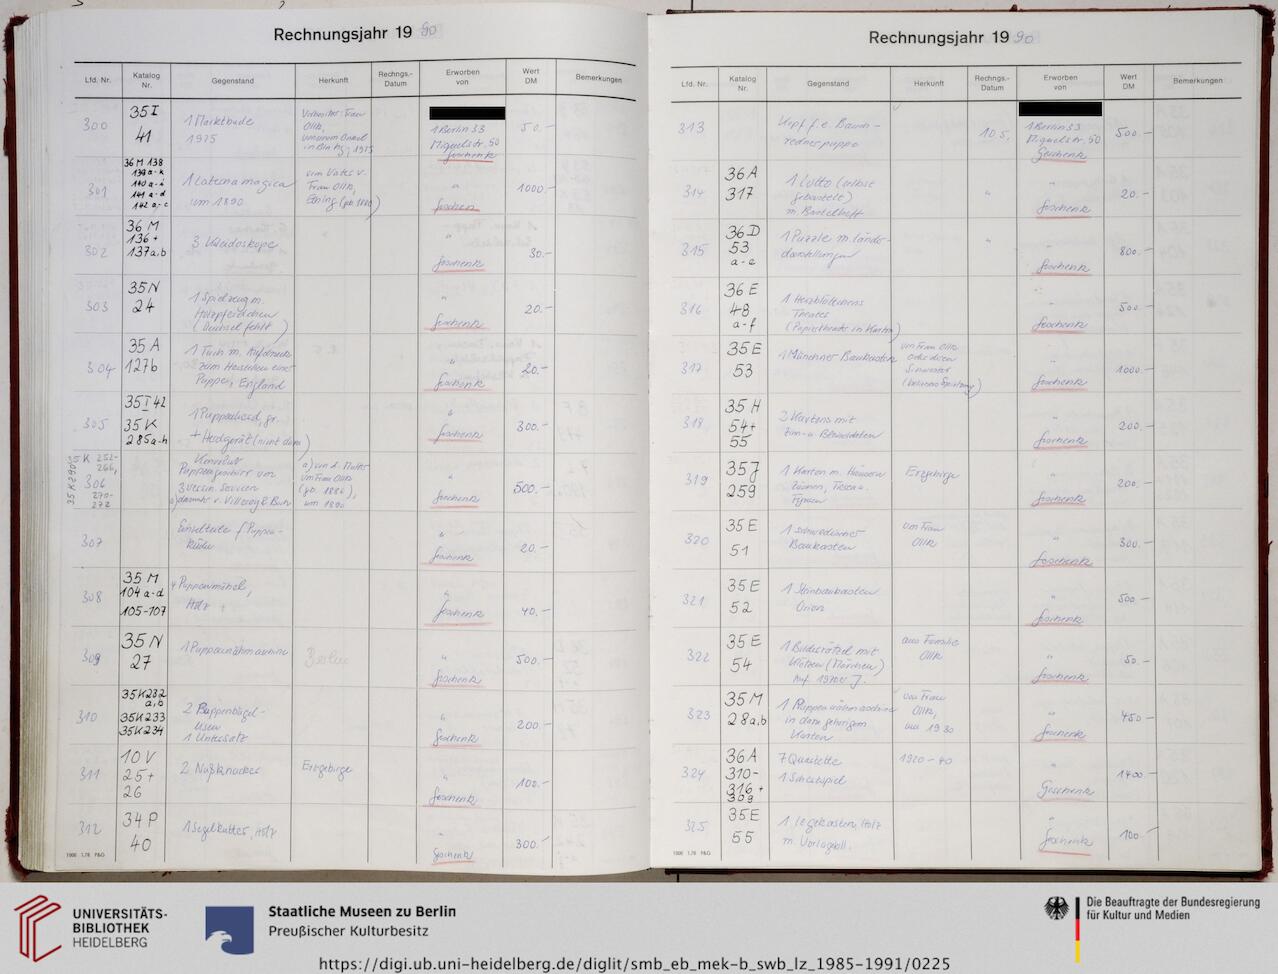 Rechnungsjahr 19 90
Lfd. Nr.
Katalog Nr.
Gegenstand
Herkunft
Rechngs.-Datum
Erworben von
Wert DM
Bemerkungen
300
35 I
41
1 Marktbude
1975
Vorbesitz: Frau
1 Berlin 33
Miquelstr. 50
Geschenk
50.-
301
36 M 138
139 a-k
140 a-i
141 a-d
142 a-c
1 Laterna magica
um 1890
vom Vater v.
"
1000.-
302
36 M
136+
137a,b
3 Kaleidoskope
"
Geschenk
30.-
303
35 N
24
1 Spielzeug m.
Holzpferdchen
(Deichsel fehlt)
"
Geschenk
20.-
304
35 A
127b
1 Tuch m. Aufdruck
zum Herstellen einer
Puppe, England
"
Geschenk
20.-
305
35 I 42
35 K
285 a-h
1 Puppenherd, gr.
+ Herdgerät
"
Geschenk
300.-
35 K 252-
306
270-
272
Konvolut
Puppengeschirr von
3 versch. Servicen
a) von d. Mutter
von Frau
um 1890
"
Geschenk
500.-
307
Einzelteile f. Puppen-
küche
"
Geschenk
20.-
308
35 M
104 a-d
105-107
4 Puppenmöbel,
Holz
"
Geschenk
40.-
309
35 N
27
1 Puppennähmaschine
Berlin
"
Geschenk
500.-
310
35K232
a,b
35K233
35K234
2 Puppenbügel-
eisen
1 Untersatz
"
Geschenk
200.-
311
10 V
25+
26
2 Nußknacker
Erzgebirge
"
Geschenk
100.-
312
34 P
40
1 Segelkutter, Holz
"
Geschenk
300.-
1000 1.78 P&G
Rechnungsjahr 19 90
Lfd. Nr.
Katalog Nr.
Gegenstand
Herkunft
Rechngs.-Datum
Erworben von
Wert DM
Bemerkungen
313
Kopf f. e. Bauch-
rednerpuppe
10.5.
1 Berlin 33
Miquelstr. 50
Geschenk
500.-
314
36 A
317
1 Lotto (selbst
gebastelt)
m. Bastelheft
"
"
Geschenk
20.-
315
36 D
53
a-e
1 Puzzle m. Länder-
darstellungen
"
"
Geschenk
800.-
316
36 E
48
a-f
1 Herzblättchens
Theater
(Papiertheater in Karton)
"
Geschenk
500.-
317
35 E
53
1 Münchner Baukasten
von Frau
oder deren
Schwester
"
Geschenk
1000.-
318
35 H
54+
55
2 Kartons mit
Zinn- u. Bleisoldaten
"
Geschenk
200.-
319
35 J
259
1 Karton m. Häusern
Bäumen, Tieren u.
Figuren
Erzgebirge
"
Geschenk
200.-
320
35 E
51
1 schwedischer
Baukasten
von Frau
"
Geschenk
300.-
321
35 E
52
1 Steinbaukasten
Orion
"
Geschenk
500.-
322
35 E
54
1 Bilderrätsel mit
Klötzen (Märchen)
Anf. 1920er J.
aus Familie
"
Geschenk
50.-
323
35 M
28a,b
1 Puppennähmaschine
in dazugehörigem
Karton
von Frau
um 1930
"
Geschenk
450.-
324
36 A
310-
316+
309
7 Quartette
1 Schachspiel
1920-40
"
Geschenk
1400.-
325
35 E
55
1 Legekasten, Holz
m. Vorlagebl.
"
Geschenk
100.-
1000 1.78 P&G
UNIVERSITÄTS-
BIBLIOTHEK
HEIDELBERG
Staatliche Museen zu Berlin
Preußischer Kulturbesitz
Die Beauftragte der Bundesregierung
für Kultur und Medien
https://digi.ub.uni-heidelberg.de/diglit/smb_eb_mek-b_swb_lz_1985-1991/0225